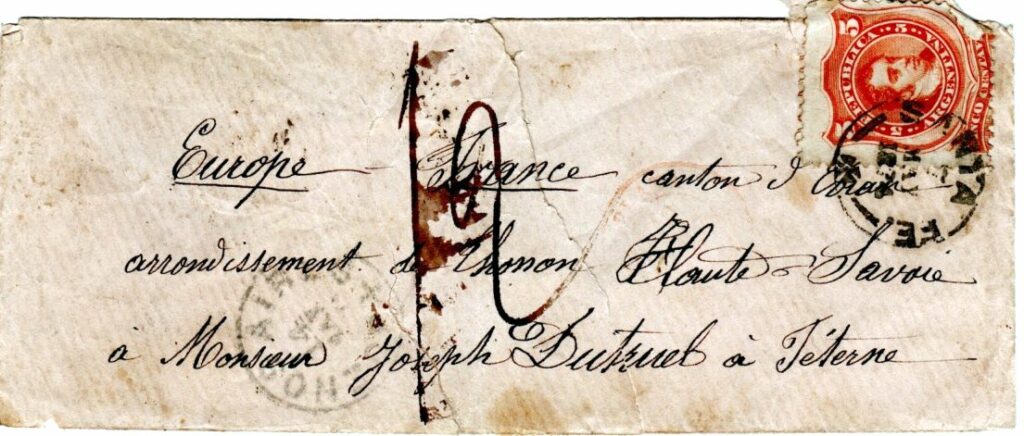 REPUBLICA ARGENTINA
5 5
SANTA FE
12
Europe - France canton d'Evian
arrondissement de Thonon Haute-Savoie
a Monsieur Joseph Dutruel à Féterne